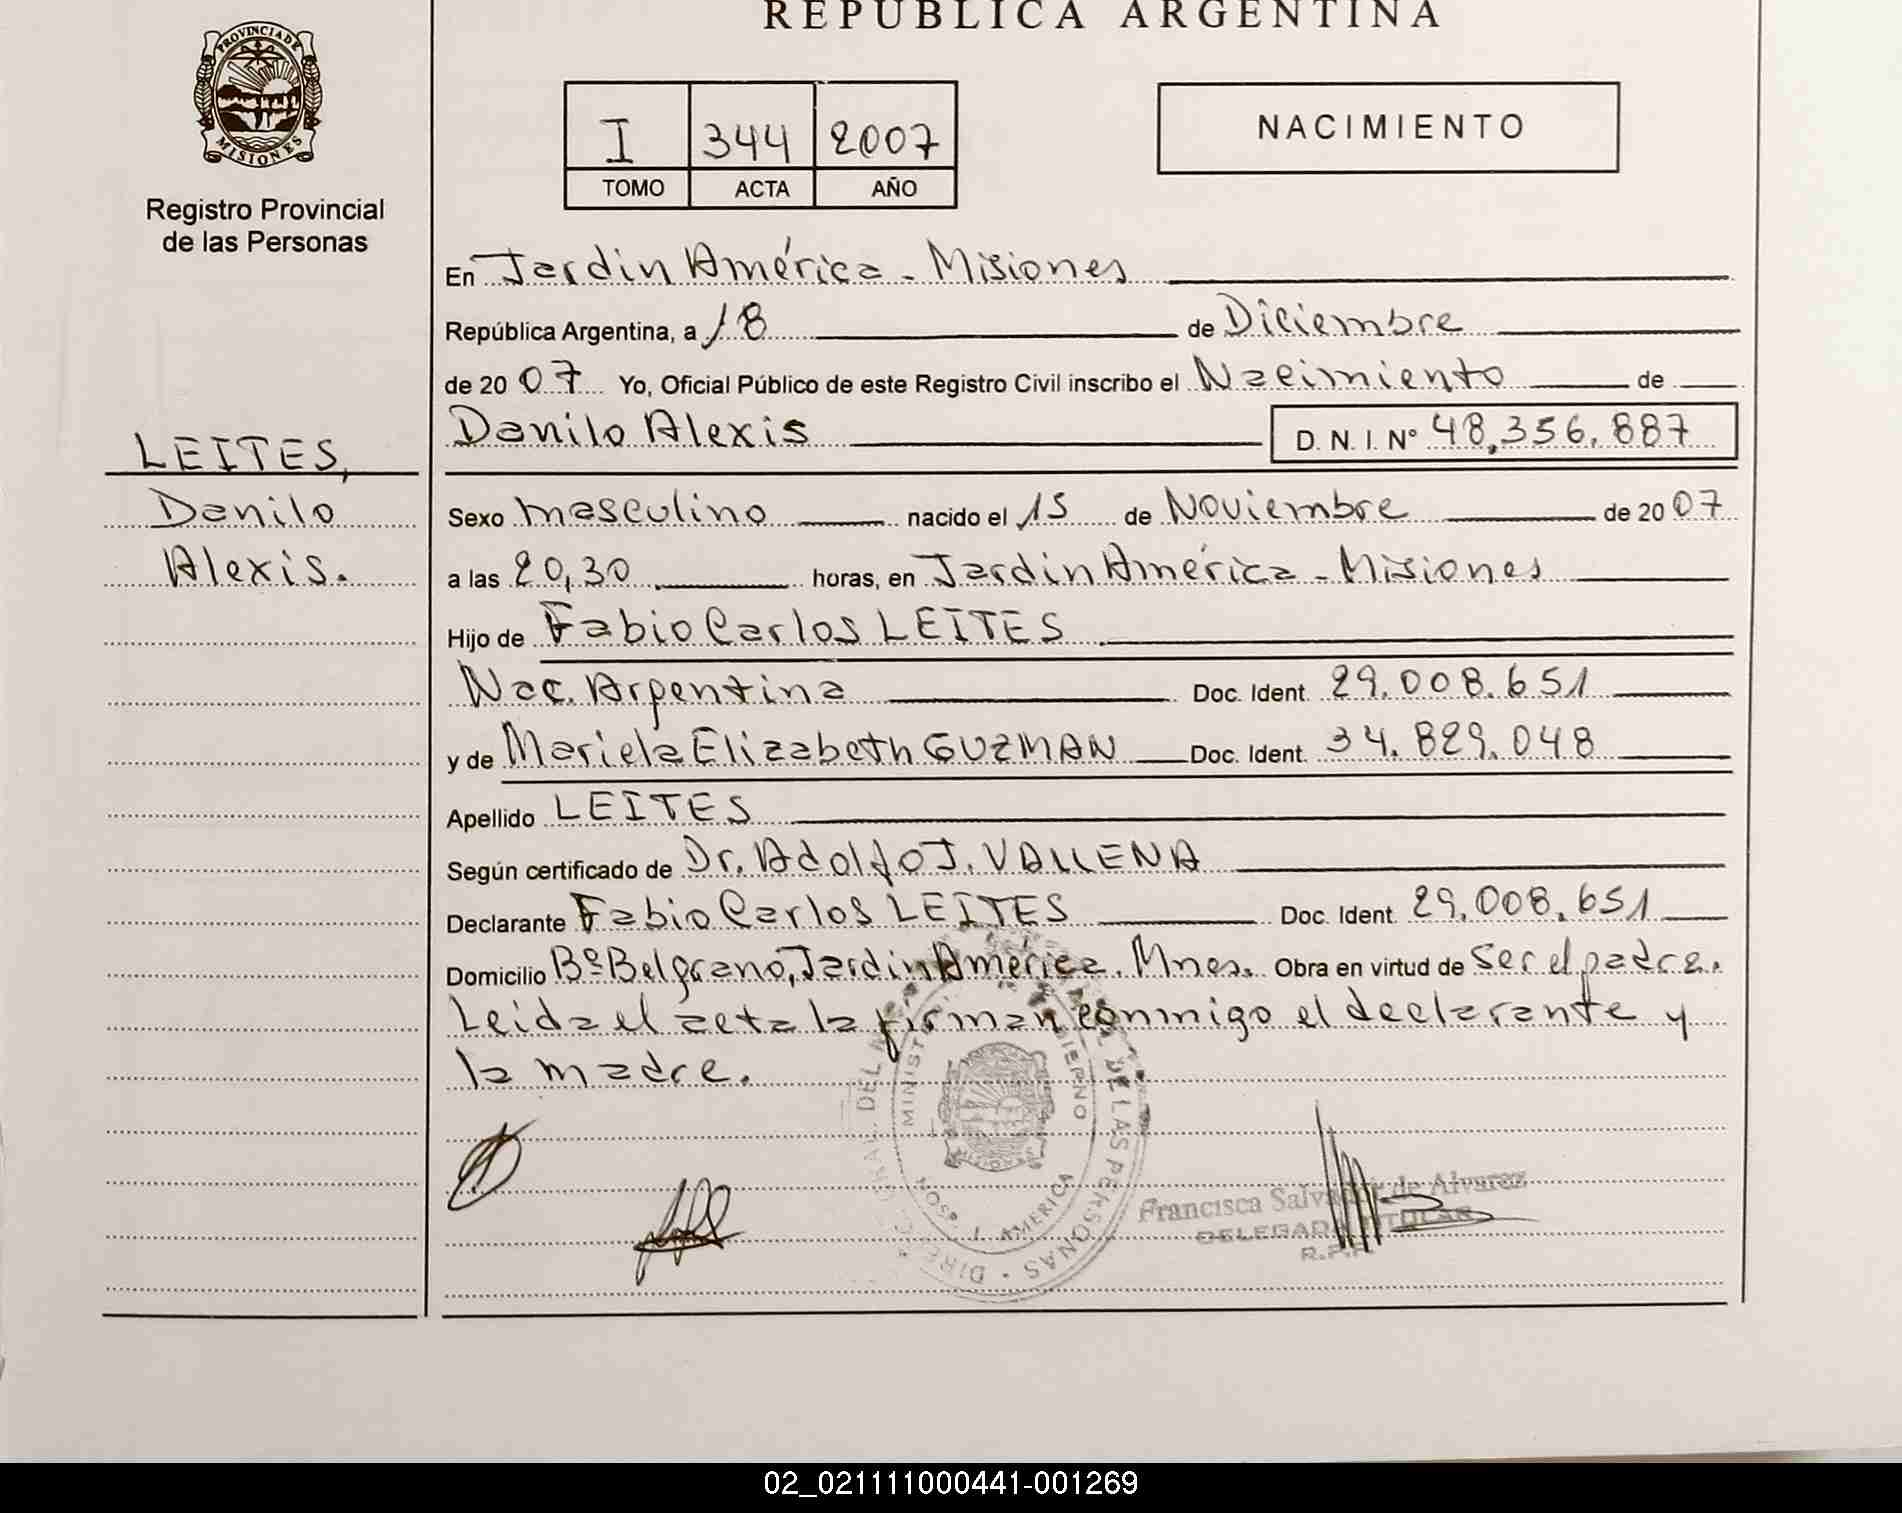 REPUBLICA ARGENTINA
PROVINCIA DE
MISIONES
Registro Provincial
de las Personas
I 344 2007
TOMO ACTA AÑO
NACIMIENTO
En Jardin América - Misiones
República Argentina, a 18 de Diciembre
de 20 07 Yo, Oficial Público de este Registro Civil inscribo el Nacimiento de
Danilo Alexis D. N. I. Nº 48,356.887
LEITES,
Danilo
Alexis.
Sexo masculino nacido el 15 de Noviembre de 20 07
a las 20,30 horas, en Jardin América - Misiones
Hijo de Fabio Carlos LEITES
Nac. Argentina Doc. Ident. 29.008.651
y de Mariela Elizabeth GUZMAN Doc. Ident. 34.829.048
Apellido LEITES
Según certificado de Dr. Adolfo J. VALLENA
Declarante Fabio Carlos LEITES Doc. Ident. 29.008.651
Domicilio Bº Belgrano, Jardin América. Mnes. Obra en virtud de ser el padre.
Leida el acta la firman conmigo el declarante y
la madre.
MINISTERIO GOBIERNO
DE LAS PERSONAS
HOSP. J. AMERICA
Francisca Salvador de Alvarez
DELEGADA TITULAR
R.P.P.
02_021111000441-001269